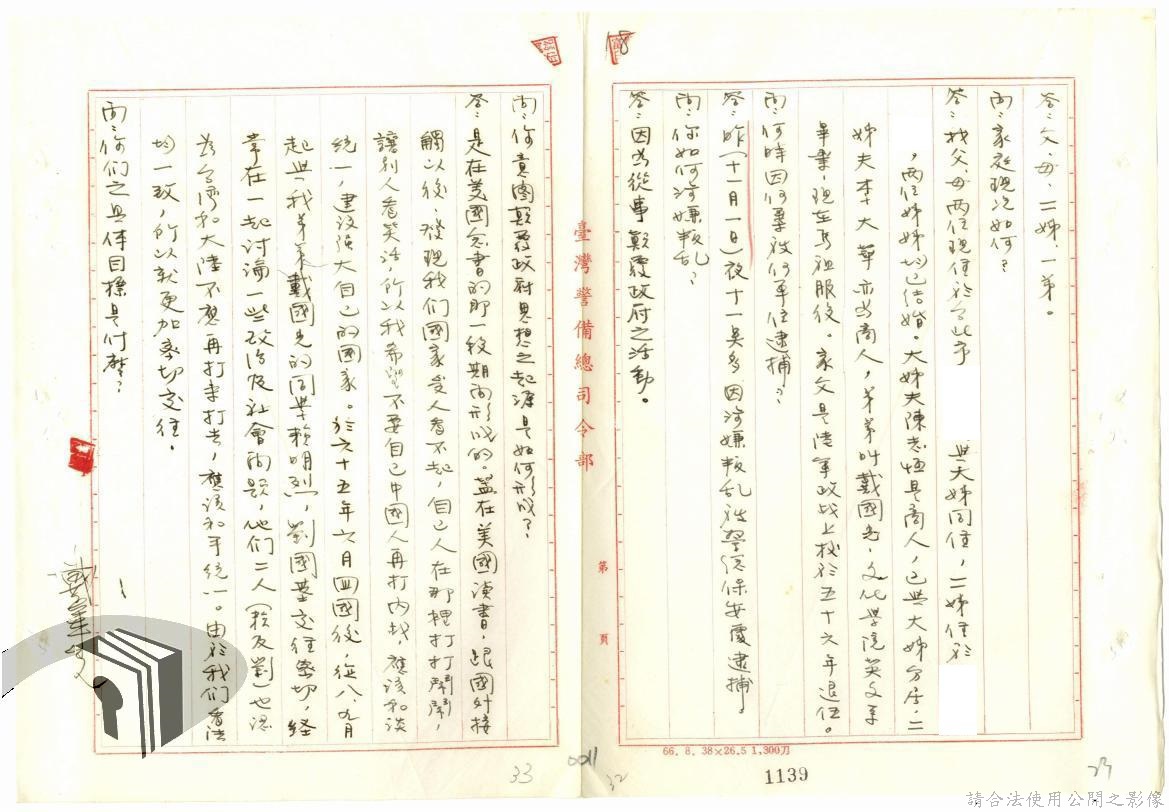 答：父、母、二姊、一弟。
問：家庭現況如何？
答：我父、母兩位現住於台北市 與大姊同住，二姊住於
，兩位姊姊均已結婚。大姊夫陳志恒是商人，已與大姊分居，二
姊夫李大華亦為商人，弟弟叫戴國光，文化學院英文系
畢業，現在馬祖服役。家父是陸軍政战上校於五十六年退伍。
問：何時因何案被何單位逮捕？
答：昨（十一月一日）夜十一點多因涉嫌叛乱被警總保安處逮捕。
問：你如何涉嫌叛乱？
答：因為從事顛覆政府之活動。
臺灣警備總司令部
第 頁
問：你意圖顛覆政府思想之起源是如何形成？
答：是在美國念書的那一段期間形成的。蓋在美國讀書，跟國外接
觸以後，發現我们國家受人看不起，自己人在那裡打打鬧鬧，
讓別人看笑話，所以我希望不要自己中國人再打內战，應該和談
統一，建設強大自己的國家。於六十五年六月回國後，從八、九月
起與我弟弟戴國光的同學賴明烈，劉國基交往密切，經
常在一起討論一些政治及社會問題，他们二人（賴及劉）也認
為台灣和大陸不應再打來打去，應該和平統一。由於我们看法
均一致，所以就更加密切交往。
問：你们之具体目標是什麼？
戴華光
66. 8. 38×26.5 1,300刀
1139
0011
33
32
18
請合法使用公開之影像